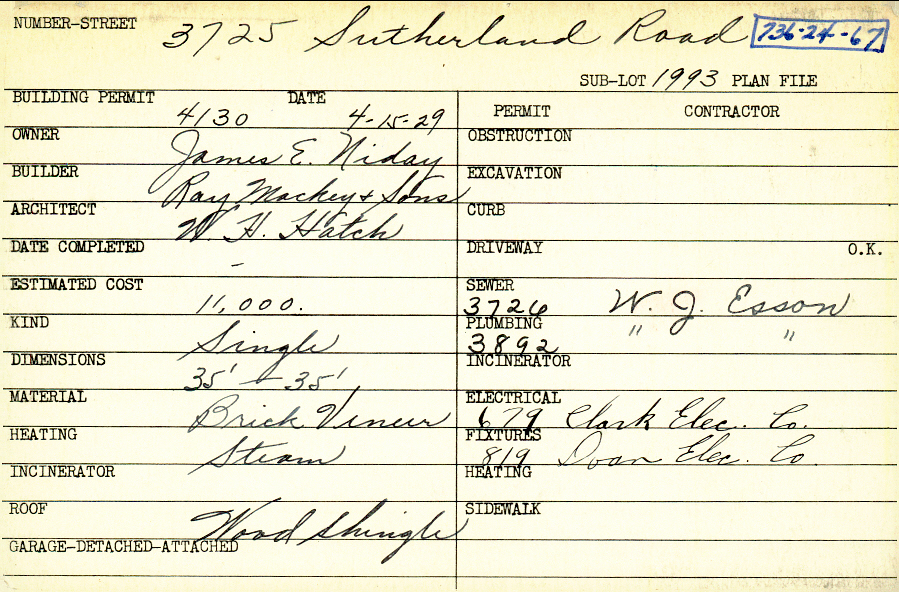 NUMBER-STREET 3725 Sutherland Road 736-24-67
SUB-LOT 1993 PLAN FILE
BUILDING PERMIT DATE PERMIT CONTRACTOR
4130 4-15-29
OWNER James E. Niday OBSTRUCTION
BUILDER Ray Mackey & Sons EXCAVATION
ARCHITECT W. H. Hatch CURB
DATE COMPLETED - DRIVEWAY O.K.
ESTIMATED COST 11,000. SEWER 3726 W. J. Esson
KIND Single PLUMBING 3892 " "
DIMENSIONS 35' - 35' INCINERATOR
MATERIAL Brick Vineer ELECTRICAL 679 Clark Elec. Co.
HEATING Steam FIXTURES 819 Doan Elec. Co.
INCINERATOR HEATING
ROOF Wood Shingle SIDEWALK
GARAGE-DETACHED-ATTACHED